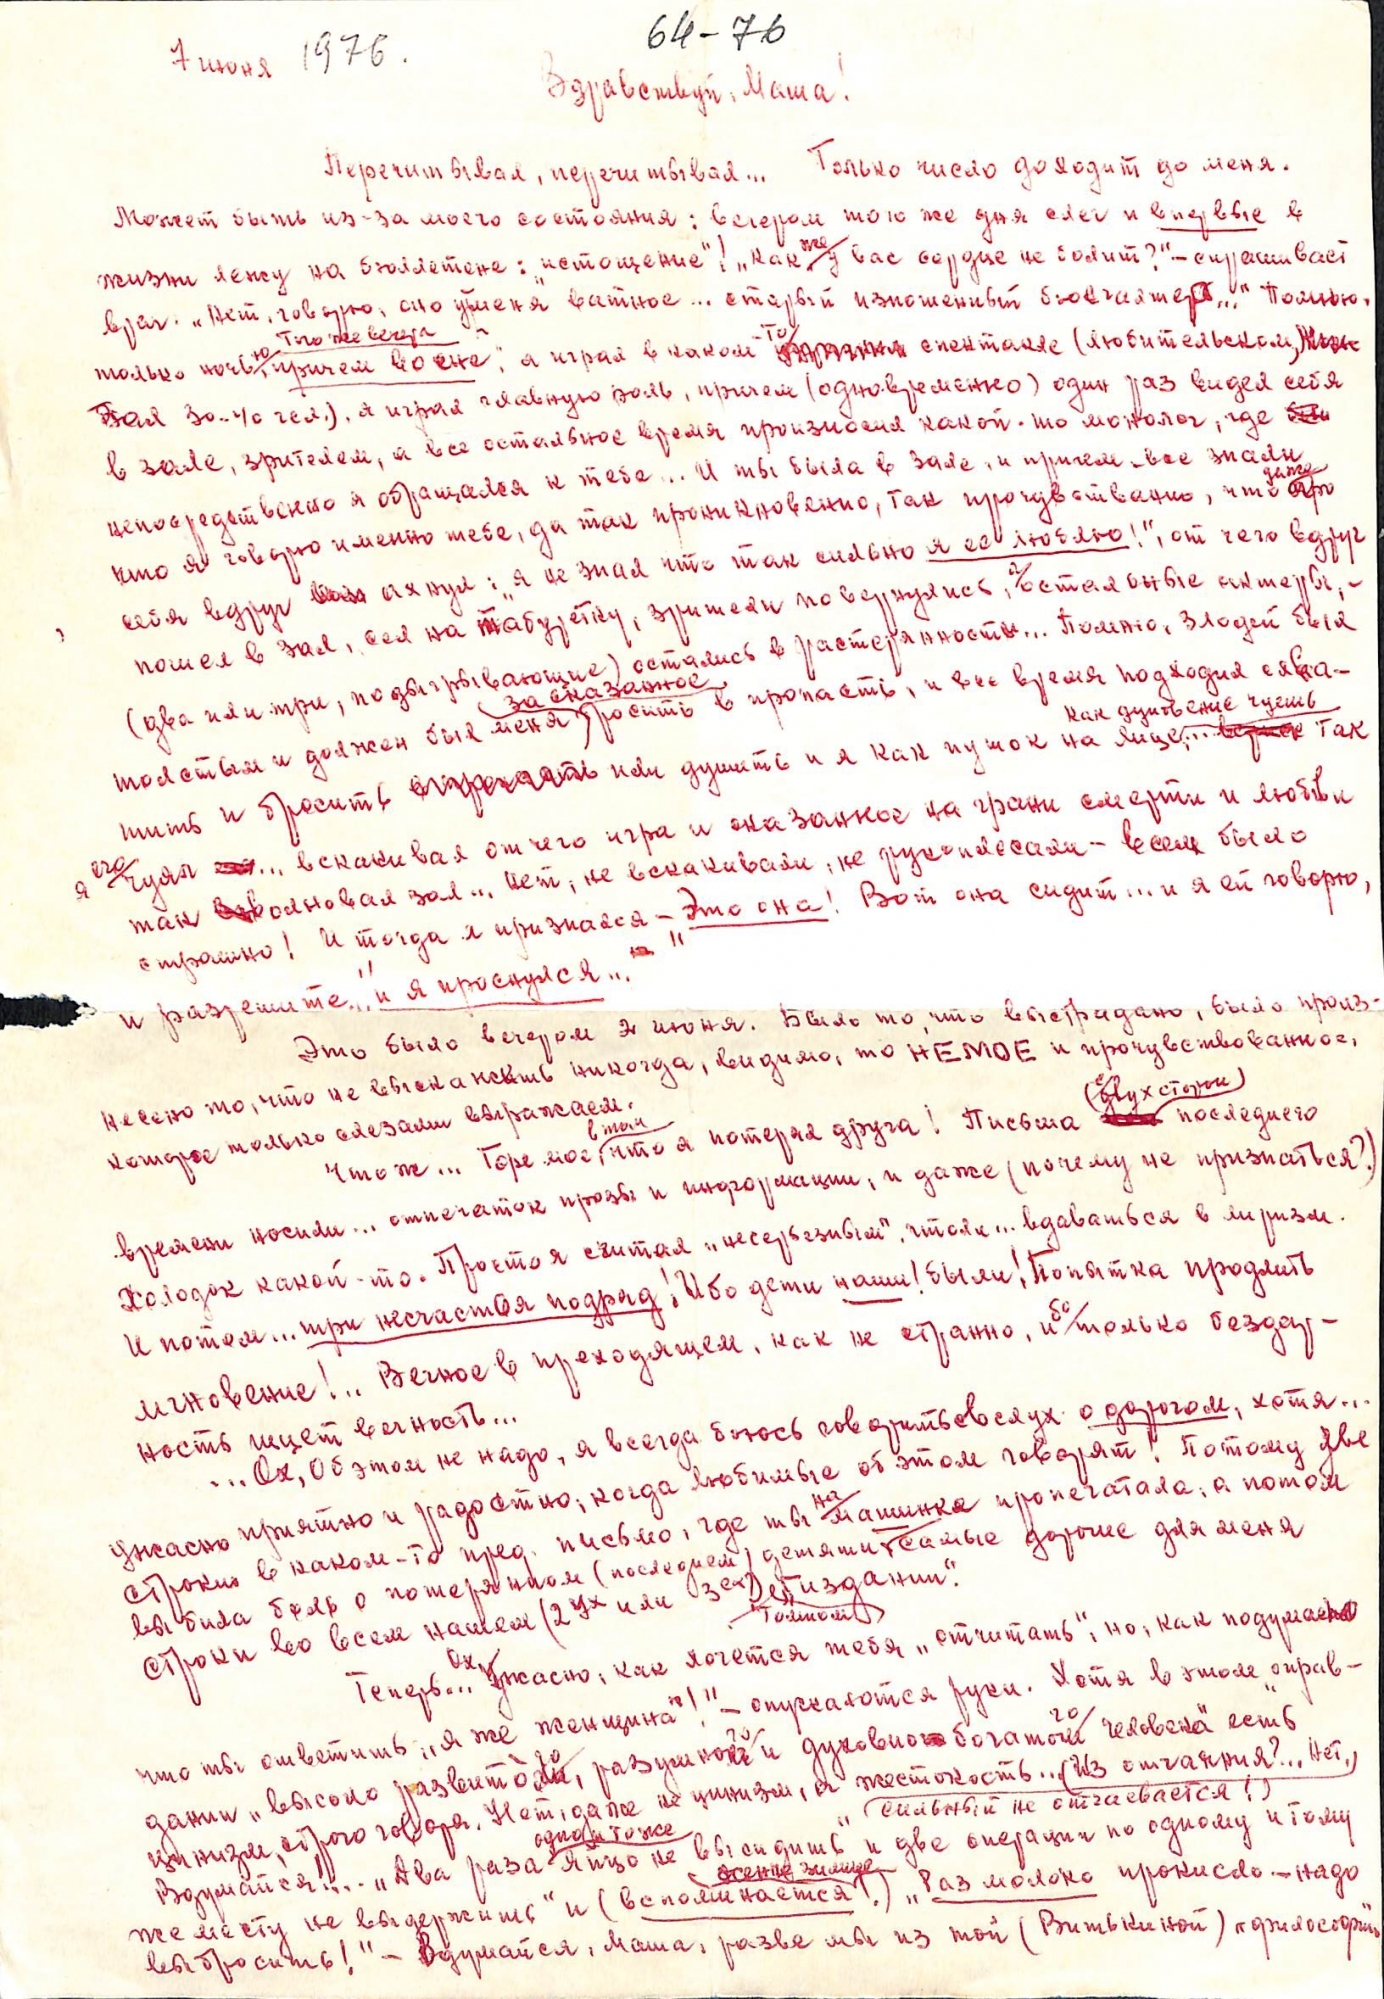 64-76
7 июня 1976.
Здравствуй, Маша!
Перечитывал, перечитывал... Только число доходит до меня.
Может быть из-за моего состояния: вечером того же дня слег и впервые в
жизни лежу на бюллетене: "истощение"! "Как же у вас сердце не болит?" - спрашивает
врач. "Нет, говорю, оно у меня ватное... старый изношенный бюстгалтер..." Помню,
только ночью, того же вечера причем во сне, я играл в каком-то спектакле (любительском,
зал 30-40 чел.), я играл главную роль, причем (одновременно) один раз видел себя
в зале, зрителем, а все остальное время произносил какой-то монолог, где
непосредственно я обращался к тебе... И ты была в зале, и причем все знали
что я говорю именно тебе, да так проникновенно, так прочувственно, что даже про
себя вдруг ахнул: "я не знал что так сильно я ее люблю!", от чего вдруг
пошел в зал, сел на табуретку, зрители повернулись, а остальные актеры, -
(два или три, подыгрывающие) остались в растерянности... Помню, злодей был
толстым и должен был меня за сказанное бросить в пропасть, и все время подходил схва-
тить и бросить или душить и я как пушок на лице... как дуновение чуешь так
я его чуял... вскакивал от чего игра и сказанное на грани смерти и любви
так волновал зал... Нет, не вскакивали, не рукоплескали - всем было
страшно! И тогда я признался - "Это она! Вот она сидит... и я ей говорю,
и разрешите..." и я проснулся..."
Это было вечером 2 июня. Было то, что выстрадано, было произ-
несено то, что не высказать никогда, видимо, то НЕМОЕ и прочувствованное,
которое только слезами выражаем.
Что ж... Горе мое, в том что я потерял друга! Письма (с двух сторон) последнего
времени носили... отпечаток прозы и информации, и даже (почему не признаться?)
холодок какой-то. Простоя считал "несерьезным", что ли... вдаваться в лиризм.
И потом... три несчастья подряд! Ибо дети наши! были! Попытка продлить
мгновение!.. Вечное в преходящем, как не странно, ибо только бездар-
ность ищет вечность...
... Ох, Об этом не надо, я всегда боюсь говорить вслух о дорогом, хотя...
ужасно приятно и радостно, когда любимые об этом говорят! Потому две
строки в каком-то пред. письмо, где ты на машинке пропечатала, а потом
выбила боль о потерянном (последнем) детяти - самые дорогие для меня
строки во всем нашем (2ух или 3ех) томном "издании".
Теперь... Ох, ужасно, как хочется тебя "отчитать", но, как подумаю
что ты ответить "я же женщина"!" - опускаются руки. Хотя в этом "оправ-
дании "высоко развитого, разумного и духовно богатого человека" есть
цинизм, строго говоря. Нет, даже не цинизм, а жестокость... (Из отчаяния?... Нет,
сильный не отчаевается!)
Вдумайся!... "Два раза одно и тоже яйцо не высидить" и две операции по одному и тому
же месту не выдержишь" и (вспоминается!) "Раз молоко прокисло - надо
выбросить!" - Вдумайся, Маша, разве мы из той (Витькиной) "философии"